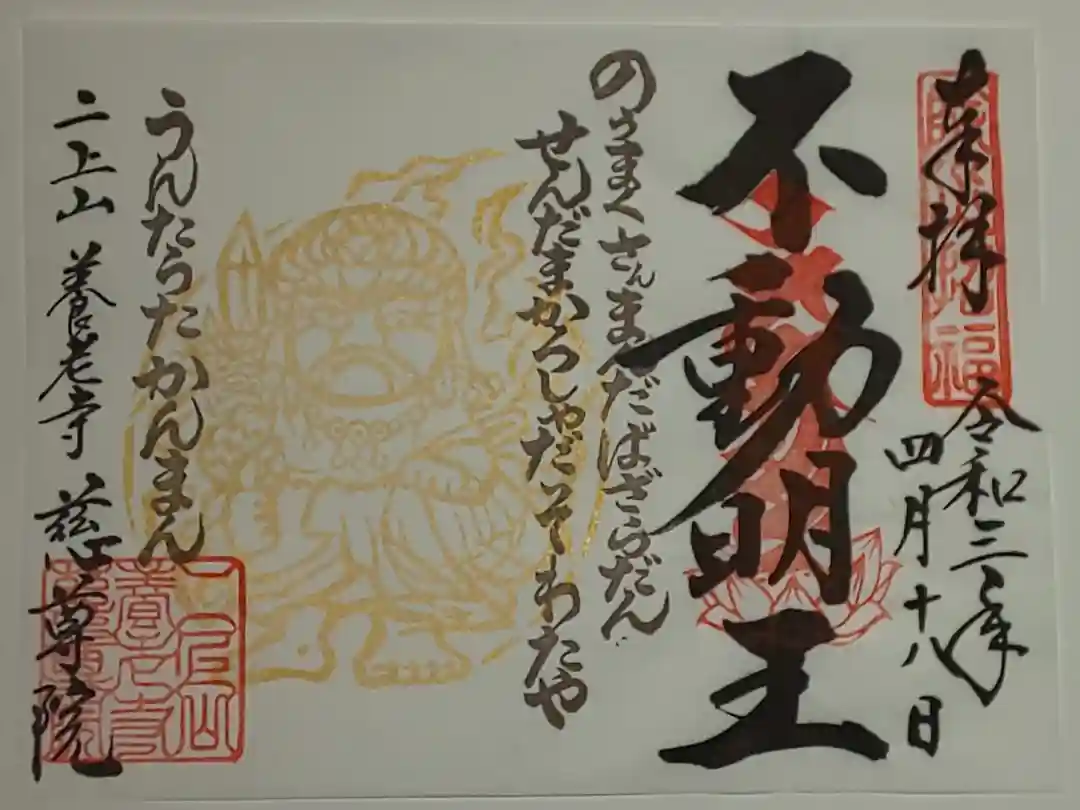 奉拝
令和三年
四月十八日
不動明王
のうまくさんまんだばざらだん
せんだまかろしゃだそわたや
うんたらたかんまん
二上山 養老寺 慈尊院